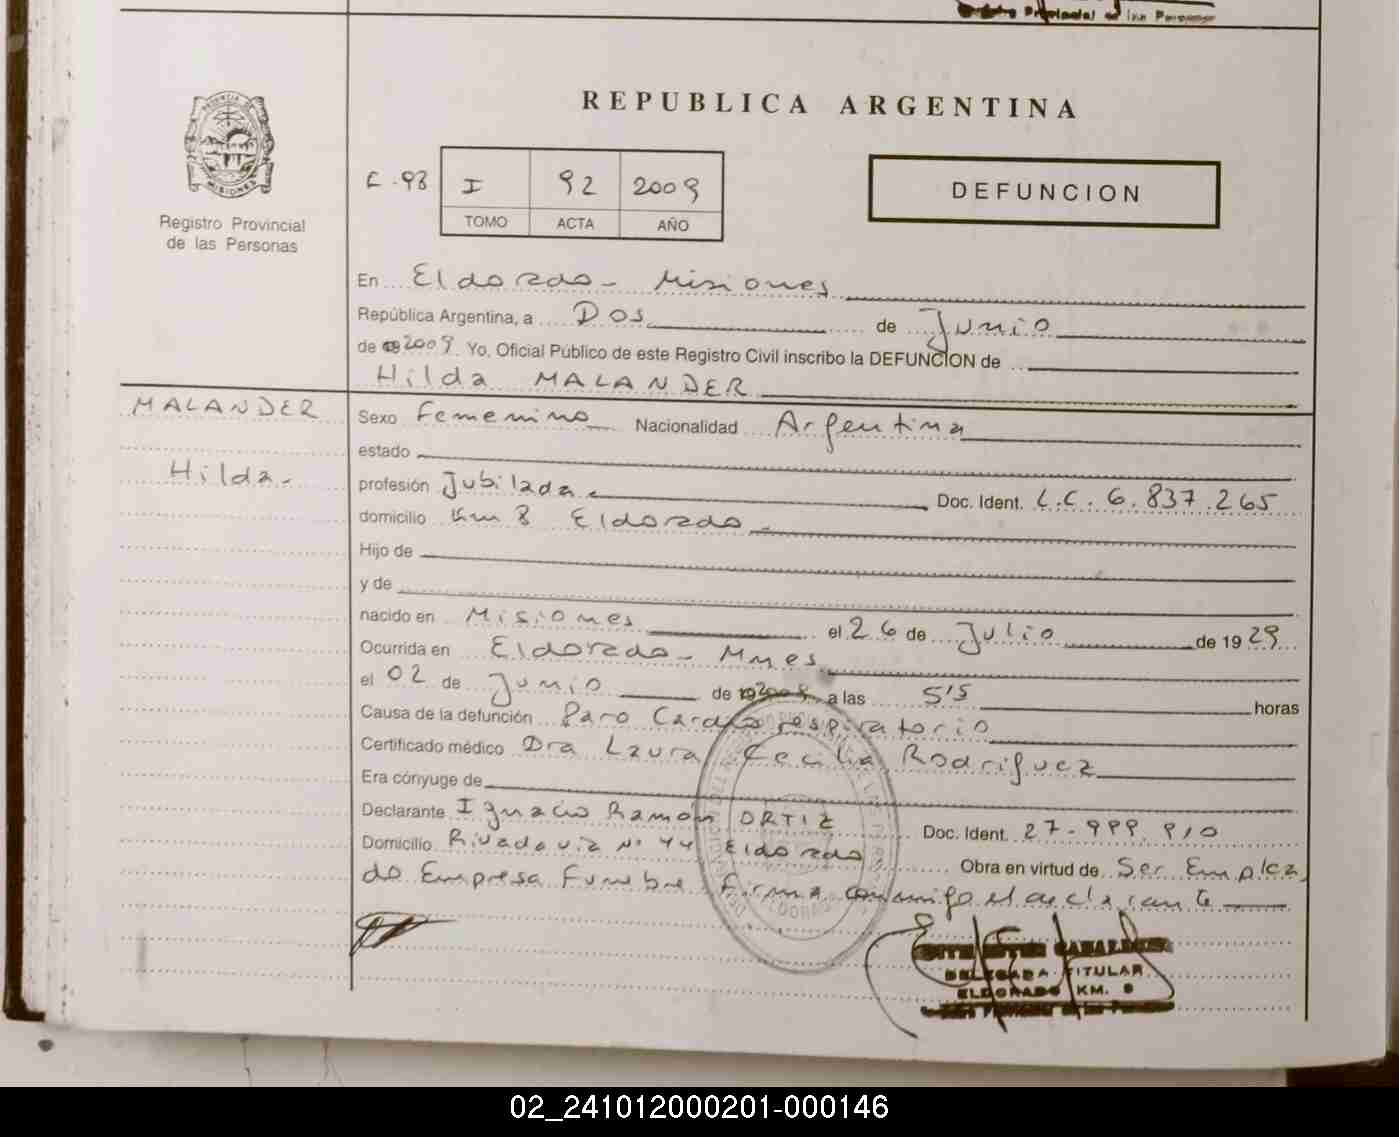 Registro Provincial de las Personas
REPUBLICA ARGENTINA
PROVINCIA DE
MISIONES
Registro Provincial
de las Personas
F.98
I 92 2009
TOMO ACTA AÑO
DEFUNCION
En Eldorado - Misiones
República Argentina, a Dos de Junio
de 2009. Yo, Oficial Público de este Registro Civil inscribo la DEFUNCION de
Hilda MALANDER
MALANDER
Hilda.-
Sexo Femenino Nacionalidad Argentina
estado
profesión Jubilada.- Doc. Ident. L.C. 6.837.265
domicilio Km 8 Eldorado.-
Hijo de
y de
nacido en Misiones el 26 de Julio de 1929
Ocurrida en Eldorado - Mnes
el 02 de Junio de 2009 a las 5'5 horas
Causa de la defunción Paro Cardiorespiratorio
Certificado médico Dra Laura Cecilia Rodriguez
Era cónyuge de
Declarante Ignacio Ramón ORTIZ Doc. Ident. 27.999.910
Domicilio Rivadavia N° 44 Eldorado Obra en virtud de Ser Emplea
do Empresa Funebre firma conmigo el declarante
DELEGADA TITULAR
ELDORADO KM.
Registro Provincial de las Personas
02_241012000201-000146